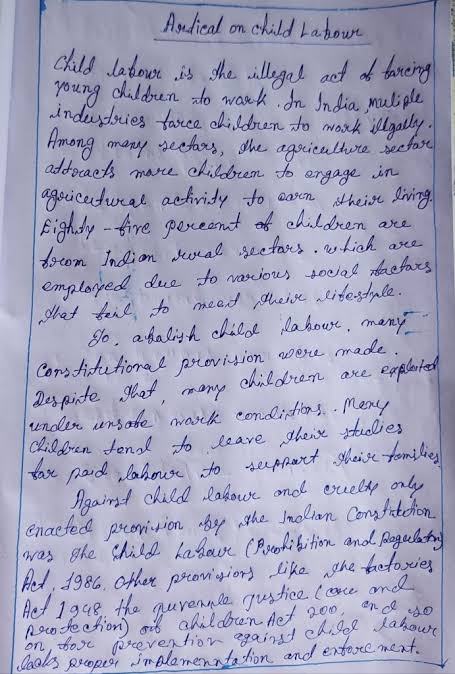 Ardical on child Labour
Child labour is the illegal act of forcing
young children to work. In India muliple
industries force children to work illgally.
Among many sectors, the agriculture sector
attracts more children to engage in
agricultural activity to earn their living.
Eighty-five percent of children are
from Indian rural sectors. which are
employed due to various social factors
that fail to meet their lifestyle.
To, abolish child labour, many
Constitutional provision were made.
Despite that, many children are exploited
under unsafe work conditions. Many
Children tend to leave their studies
for paid labour to support their families.
Against child labour and cruelty only
enacted provision by the Indian Constitution
was the Child Labour (Prohibition and Regulation)
Act, 1986. Other provisions like the factories
Act 1948 the juvenile justice (care and
protection) of children Act 200, and so
on, for prevention against child labour
lacks proper implemenntation and enforcment.